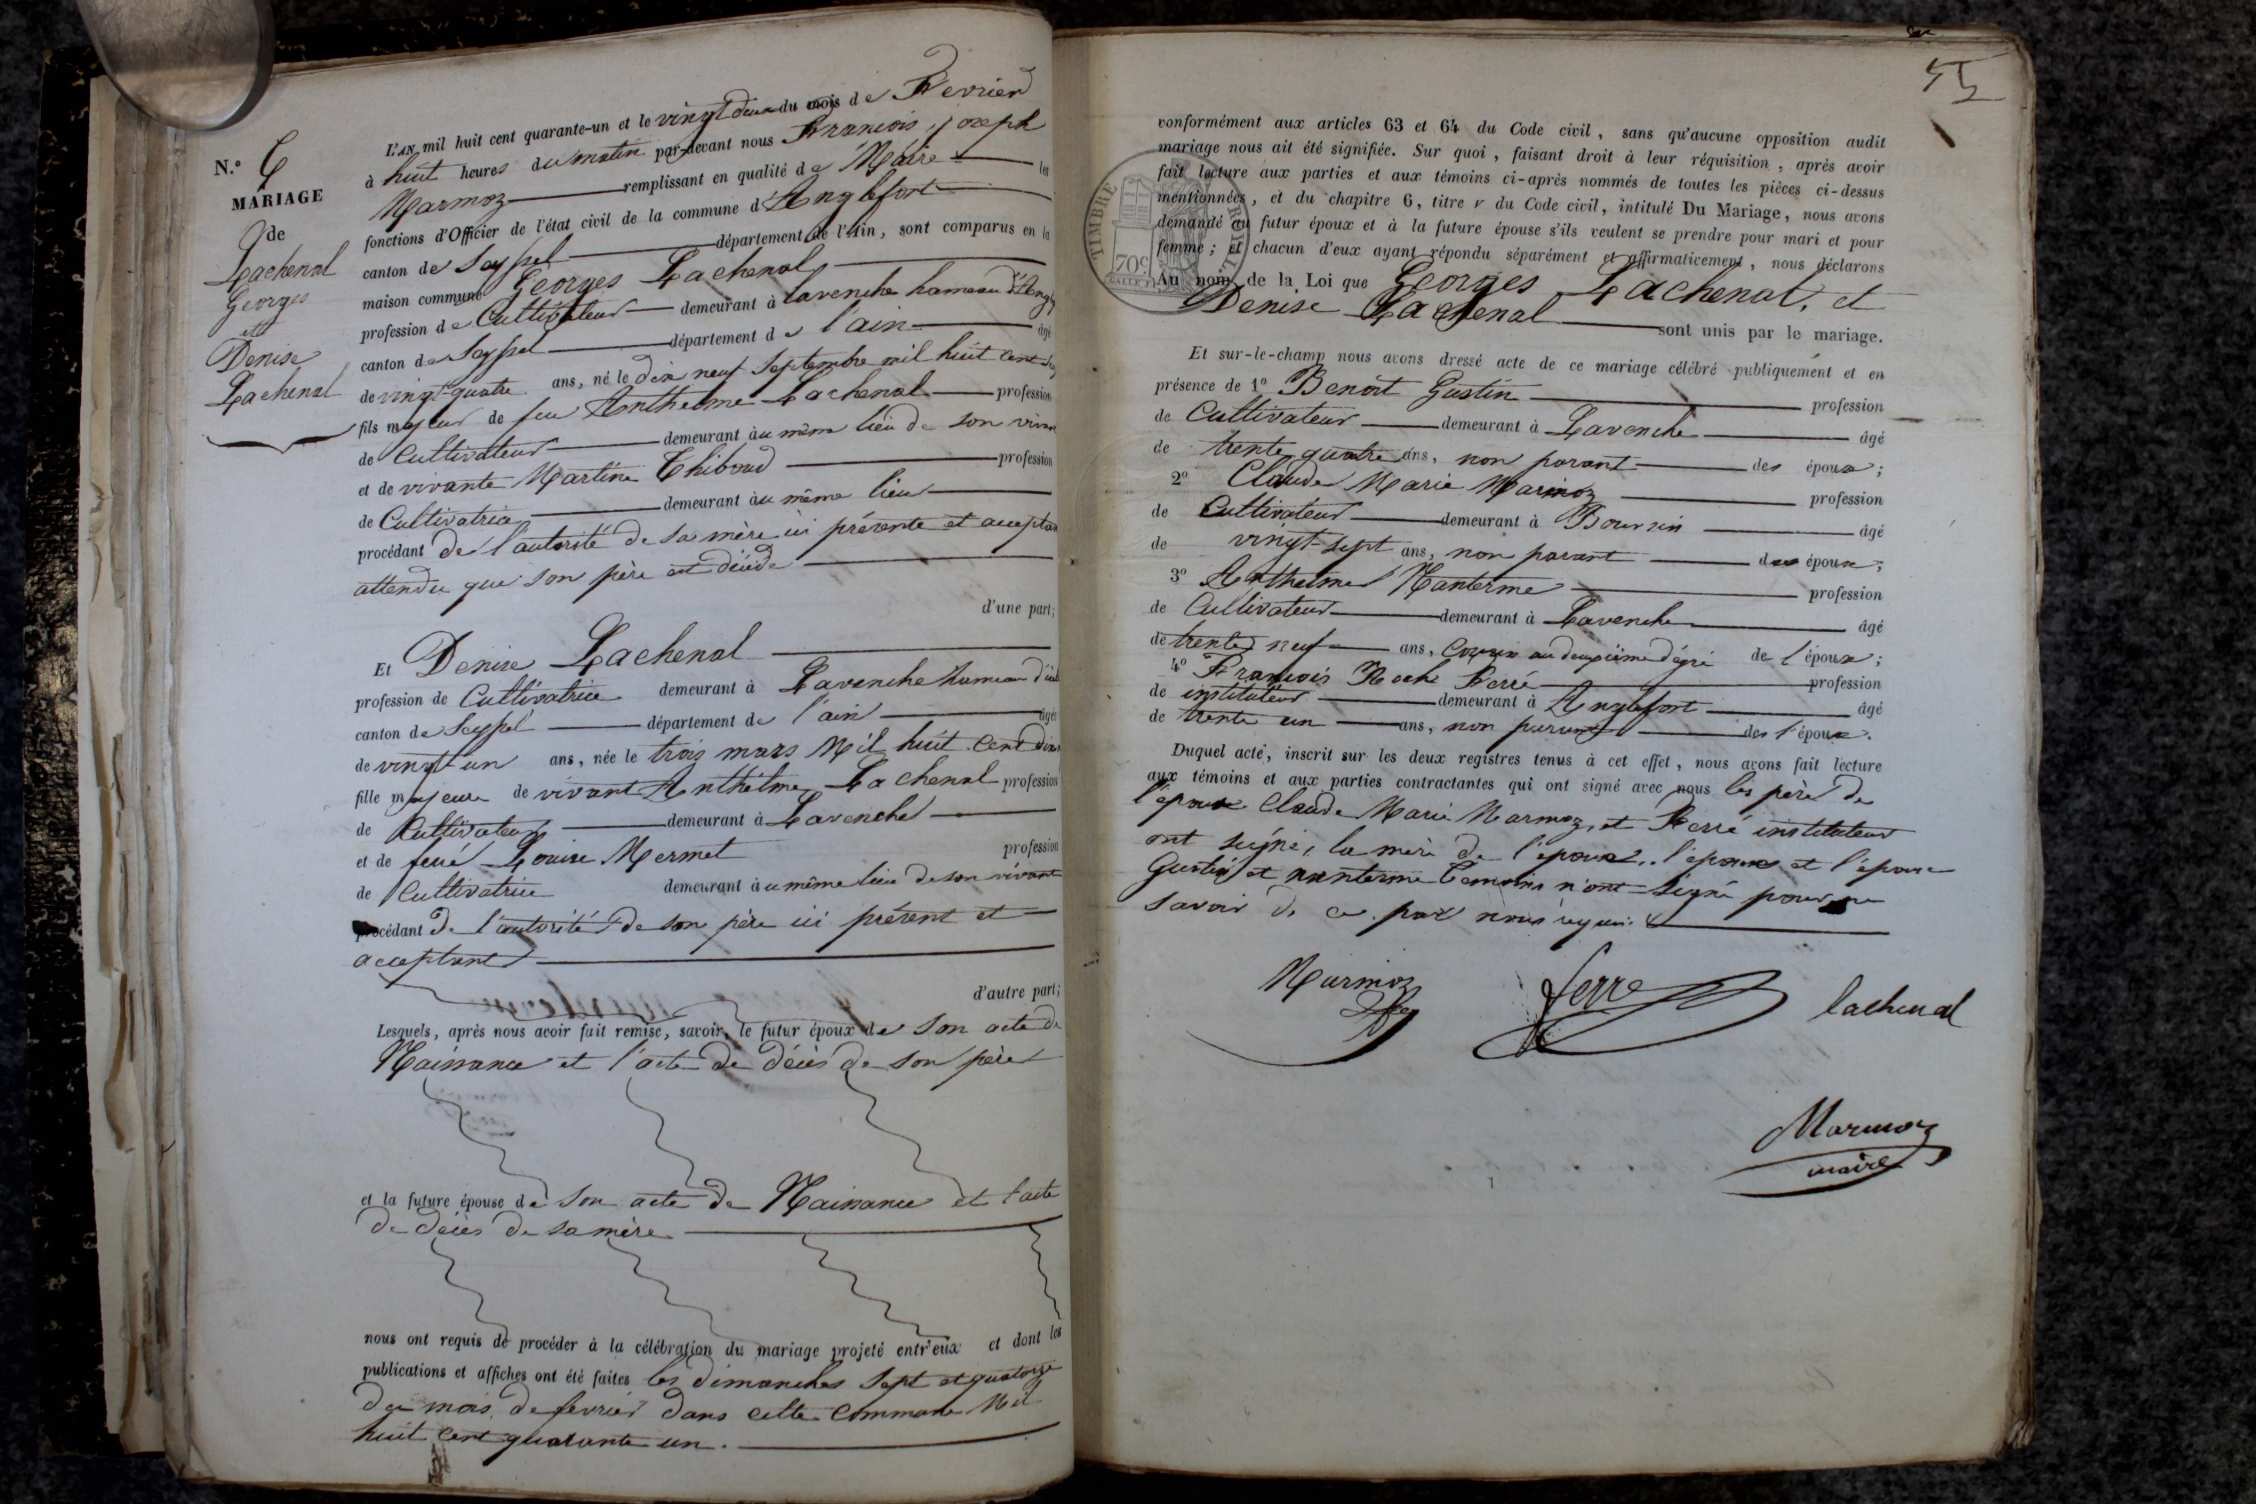 N.° 6
MARIAGE
de
Lachenal
Georges
et
Denise
Lachenal
L'AN mil huit cent quarante-un et le vingt deux du mois de Fevrier
à huit heures du matin par-devant nous François joseph
Marmoz remplissant en qualité de Maire les
fonctions d'Officier de l'état civil de la commune d'Anglefort
canton de Seyssel département de l'Ain, sont comparus en la
maison commune Georges Lachenal
profession de Cultivateur demeurant à Lavenche hameau d'Angl
canton de Seyssel département de l'ain âgé
de vingt-quatre ans, né le dix neuf Septembre mil huit cent
fils majeur de feu Anthelme Lachenal profession
de Cultivateur demeurant au même lieu de son vivant
et de vivante Martine Thiboud profession
de Cultivatrice demeurant au même lieu
procédant de l'autorité de sa mère ici présente et acceptan
attendu que son père est décédé
d'une part;
Et Denise Lachenal
profession de Cultivatrice demeurant à Lavenche hameau
canton de Seyssel département de l'ain âgée
de vingt-un ans, née le trois mars Mil huit Cent dix
fille majeure de vivant Anthelme Lachenal profession
de Cultivateur demeurant à Lavenche
et de feue Louise Mermet profession
de Cultivatrice demeurant au même lieu de son vivant
procédant de l'autorité de son père ici présent et
acceptant
d'autre part;
Lesquels, après nous avoir fait remise, savoir, le futur époux de son acte de
Naissance et l'acte de décès de son père
et la future épouse de son acte de Naissance et l'acte
de décès de sa mère
nous ont requis de procéder à la célébration du mariage projeté entr'eux et dont les
publications et affiches ont été faites les dimanches sept et quatorze
du mois de fevrier dans cette commune Mil
huit cent quarante un.
conformément aux articles 63 et 64 du Code civil, sans qu'aucune opposition audit
mariage nous ait été signifiée. Sur quoi, faisant droit à leur réquisition, après avoir
fait lecture aux parties et aux témoins ci-après nommés de toutes les pièces ci-dessus
mentionnées, et du chapitre 6, titre v du Code civil, intitulé Du Mariage, nous avons
demandé au futur époux et à la future épouse s'ils veulent se prendre pour mari et pour
femme; et chacun d'eux ayant répondu séparément et affirmativement, nous déclarons
Au nom de la Loi que Georges Lachenal, et
Denise Lachenal sont unis par le mariage.
TIMBRE ROYAL
70c
Et sur-le-champ nous avons dressé acte de ce mariage célébré publiquement et en
présence de 1° Benoit Gustin profession
de Cultivateur demeurant à Lavenche âgé
de trente quatre ans, non parant des époux;
2° Claude Marie Marmoz profession
de Cultivateur demeurant à Boursin âgé
de vingt-sept ans, non parant des époux;
3° Anthelme Nanterme profession
de Cultivateur demeurant à Lavenche âgé
de trente neuf ans, Cousin au deuxième dégré de l'époux;
4° François Roch Ferré profession
de instituteur demeurant à Anglefort âgé
de trente un ans, non parant des époux.
Duquel acte, inscrit sur les deux registres tenus à cet effet, nous avons fait lecture
aux témoins et aux parties contractantes qui ont signé avec nous les père de
l'épouse Claude Marie Marmoz, et Ferré instituteur
ont signé, la mère de l'époux, l'époux et l'épouse
Gustin et nanterme temoins n'ont signé pour ne
savoir de ce par nous requis.
Marmoz
ferre
lachenal
Marmoz
maire